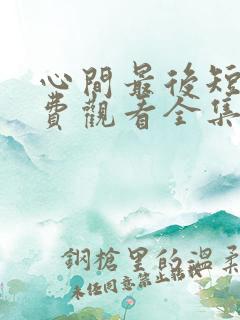 心間最後短
費觀看全集
鋼槍里的溫柔
未经同意禁止转载